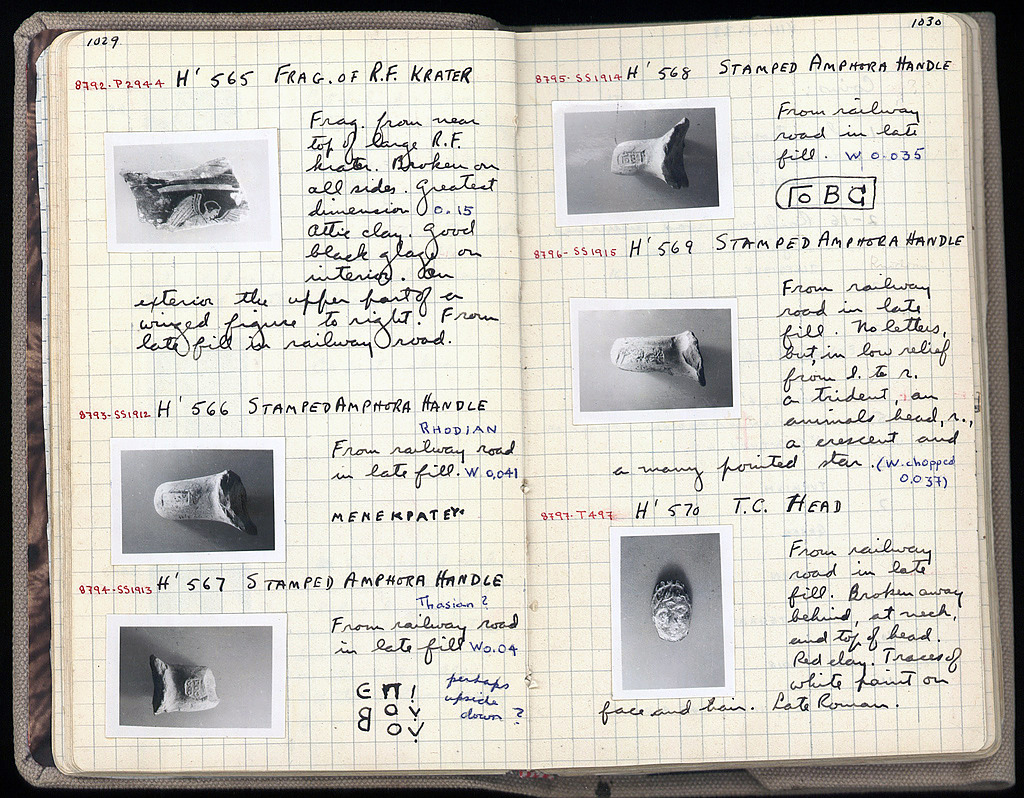 1029
8792-P2944 H' 565 FRAG. OF R.F. KRATER
Frag. from near
top of large R.F.
krater. Broken on
all sides. Greatest
dimension 0.15
Attic clay. Good
black glaze on
interior. On
exterior the upper part of a
winged figure to right. From
late fill in railway road.
8793-SS1912 H' 566 STAMPED AMPHORA HANDLE
RHODIAN
From railway road
in late fill. W 0,041
8794-SS1913 H' 567 STAMPED AMPHORA HANDLE
Thasian?
From railway road
in late fill W 0.04
perhaps
upside
down?
1030
8795-SS1914 H' 568 STAMPED AMPHORA HANDLE
From railway
road in late
fill. W 0.035
8796-SS1915 H' 569 STAMPED AMPHORA HANDLE
From railway
road in late
fill. No letters,
but, in low relief
from l. to r.
a trident, an
animals head, r.,
a crescent and
a many pointed star. (W. chopped
0.037)
8797-T497 H' 570 T.C. HEAD
From railway
road in late
fill. Broken away
behind, at neck,
and top of head.
Red clay. Traces of
white paint on
face and hair. Late Roman.